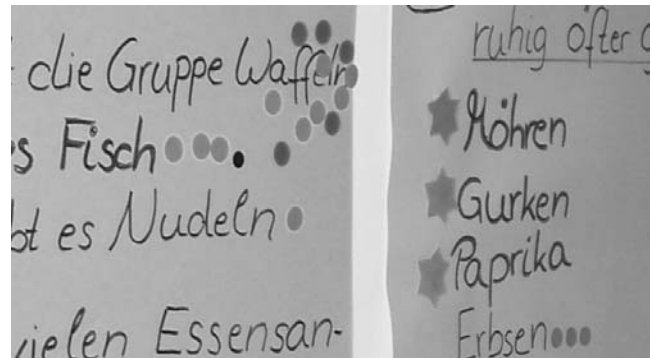 die Gruppe Waffeln
Fisch
es Nudeln
vielen Essensan-
ruhig öfter
Möhren
Gurken
Paprika
Erbsen